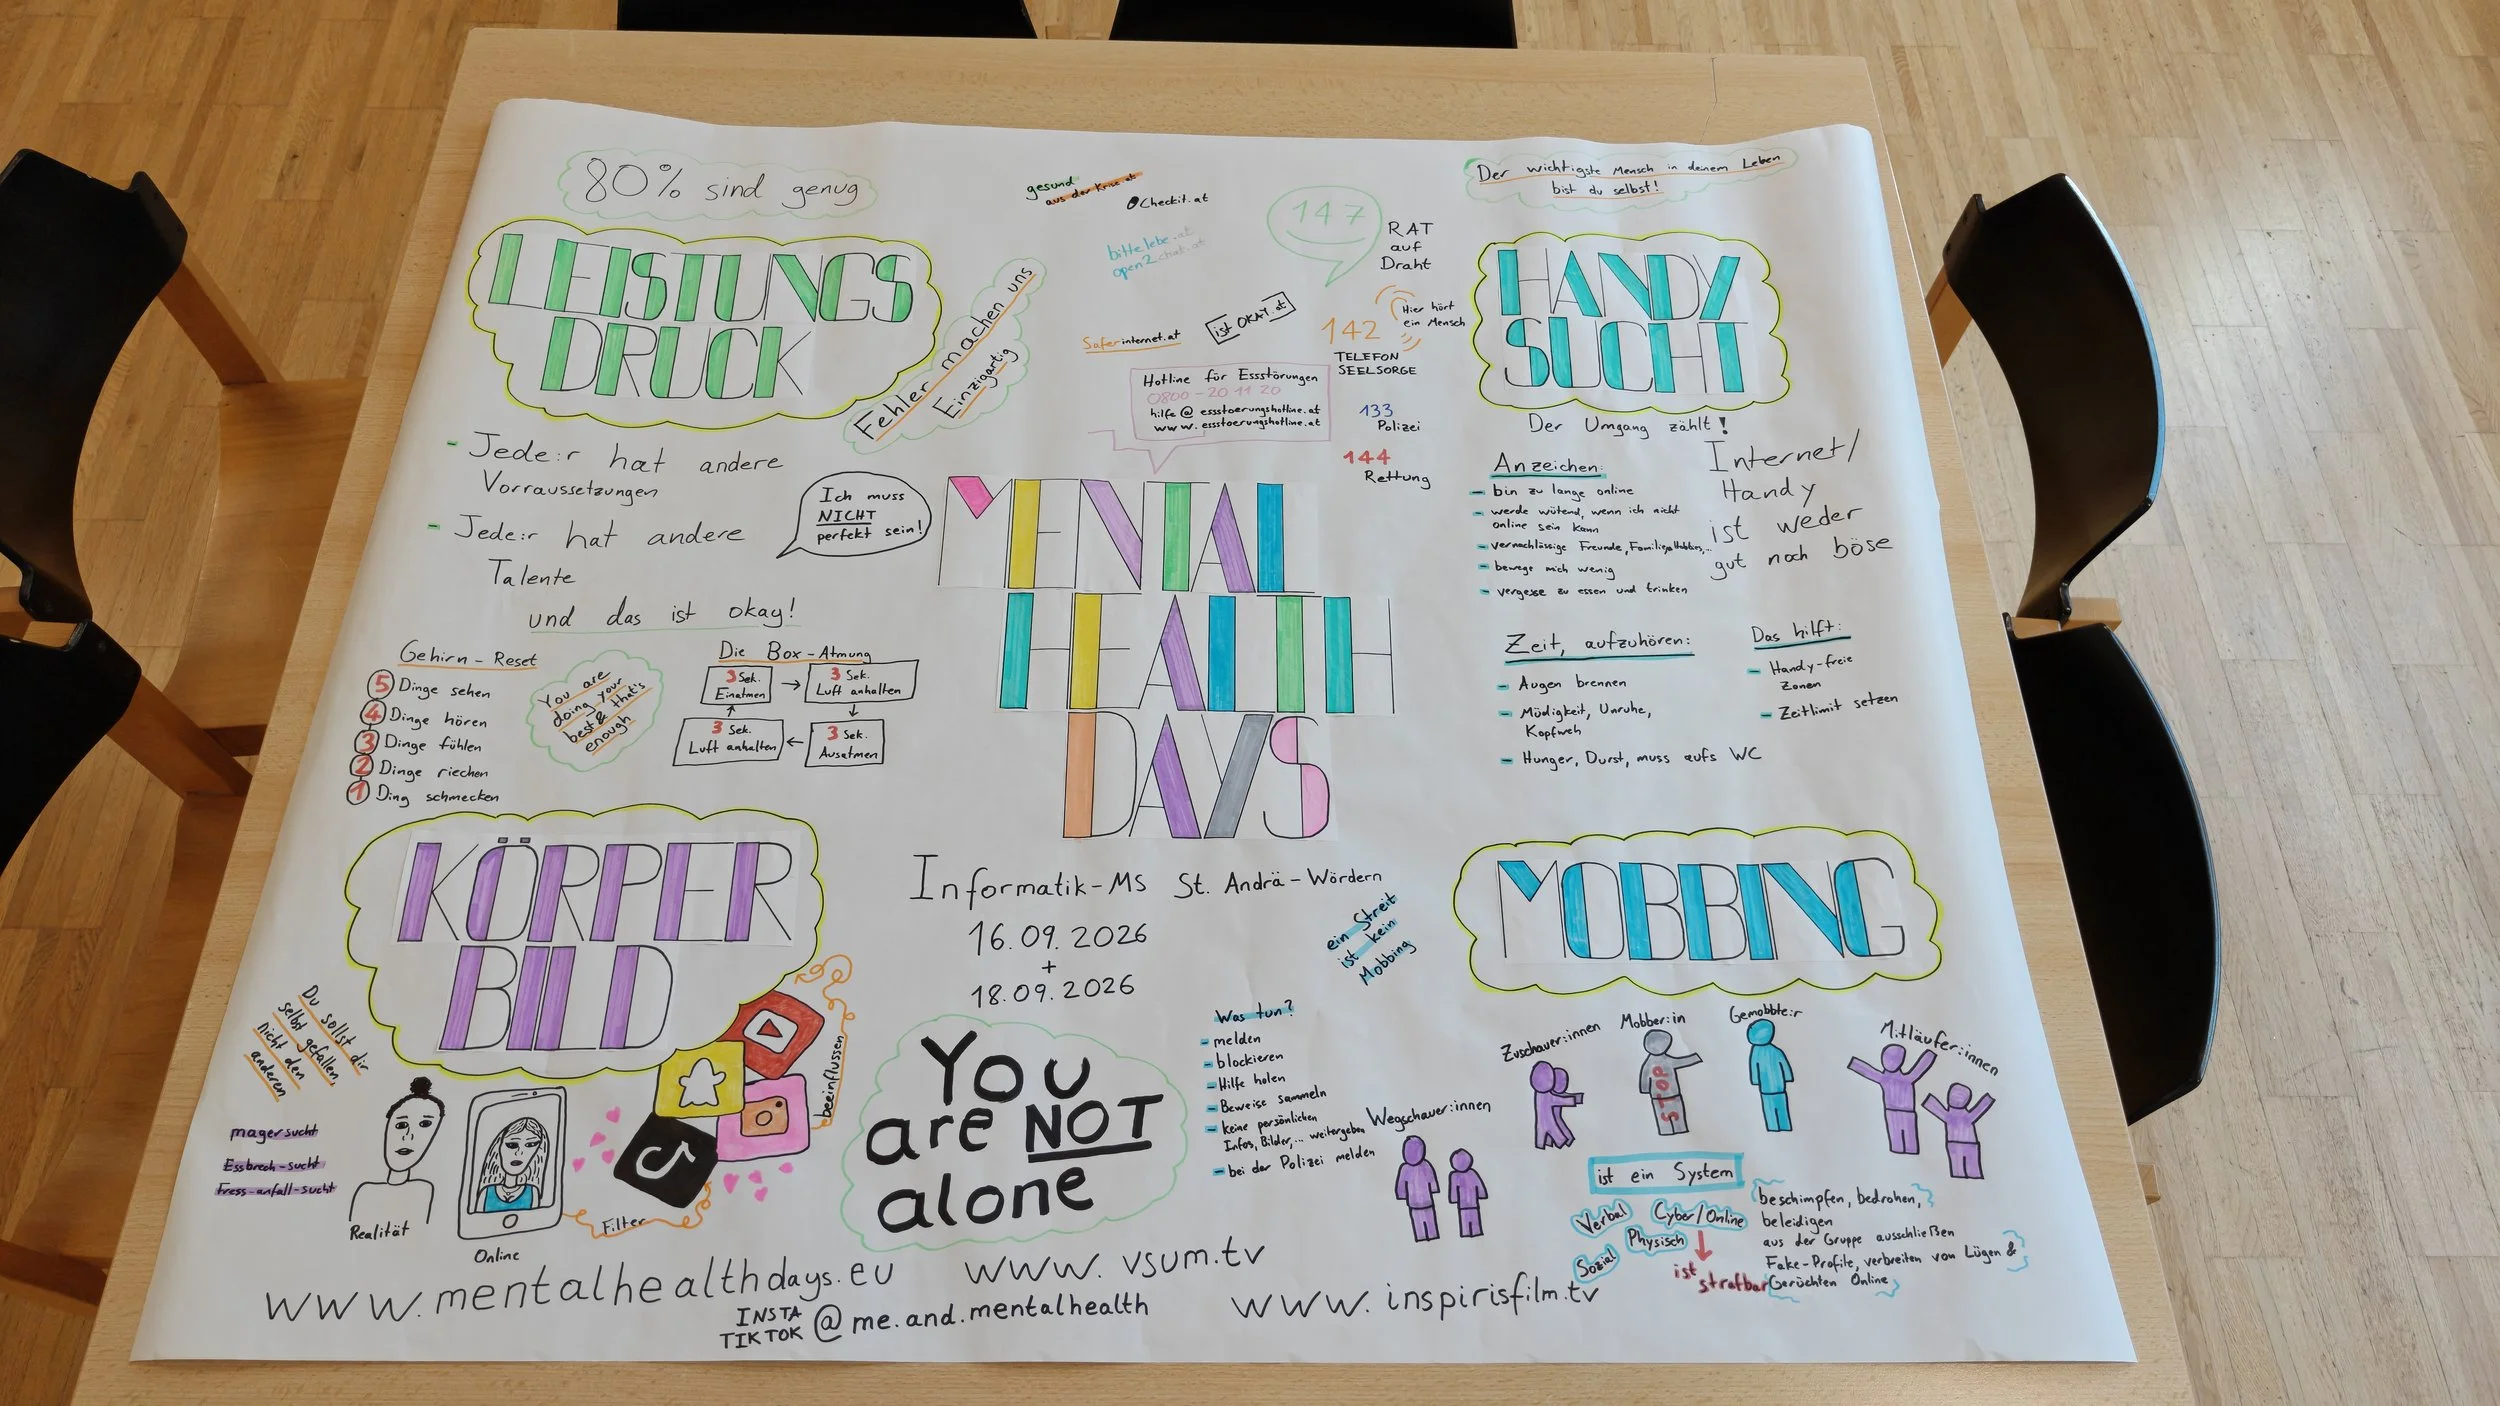 80% sind genug
LEISTUNGS
DRUCK
Fehler machen uns
Einzigartig
- Jede:r hat andere
Vorraussetzungen
- Jede:r hat andere
Talente
und das ist okay!
Ich muss
NICHT
perfekt sein!
Gehirn-Reset
5 Dinge sehen
4 Dinge hören
3 Dinge fühlen
2 Dinge riechen
1 Ding schmecken
You are
doing your
best & that's
enough
Die Box-Atmung
3 Sek.
Einatmen
3 Sek.
Luft anhalten
3 Sek.
Ausatmen
3 Sek.
Luft anhalten
gesund
aus der Krise.at
Checkit.at
bittelebe.at
open2chat.at
Saferinternet.at
ist OKAY.at
147
RAT
auf
Draht
142
Hier hört
ein Mensch
TELEFON
SEELSORGE
133
Polizei
144
Rettung
Hotline für Essstörungen
0800-20 11 20
hilfe@essstoerungshotline.at
www.essstoerungshotline.at
MENTAL
HEALTH
DAYS
Informatik-MS St. Andrä-Wördern
16.09.2026
+
18.09.2026
You
are NOT
alone
Der wichtigste Mensch in deinem Leben
bist du selbst!
HANDY
SUCHT
Der Umgang zählt!
Anzeichen:
- bin zu lange online
- werde wütend, wenn ich nicht
online sein kann
- vernachlässige Freunde, Familie, Hobbies,...
- bewege mich wenig
- vergesse zu essen und trinken
Internet/
Handy
ist weder
gut noch böse
Zeit, aufzuhören:
- Augen brennen
- Müdigkeit, Unruhe,
Kopfweh
- Hunger, Durst, muss aufs WC
Das hilft:
- Handy-freie
Zonen
- Zeitlimit setzen
KÖRPER
BILD
Du sollst dir
selbst gefallen,
nicht den
anderen
magersucht
Essbrech-sucht
Fress-anfall-sucht
Realität
Online
Filter
beeinflussen
MOBBING
ein Streit
ist kein
Mobbing
Was tun?
- melden
- blockieren
- Hilfe holen
- Beweise sammeln
- keine persönlichen
Infos, Bilder,... weitergeben
- bei der Polizei melden
Wegschauer:innen
Zuschauer:innen
Mobber:in
STOP
Gemobbte:r
Mitläufer:innen
ist ein System
Verbal
Cyber/Online
Physisch
Sozial
ist
strafbar
beschimpfen, bedrohen,
beleidigen
aus der Gruppe ausschließen
Fake-Profile, verbreiten von Lügen &
Gerüchten Online
www.mentalhealthdays.eu
www.vsum.tv
INSTA
TIKTOK
@me.and.mentalhealth
www.inspirisfilm.tv